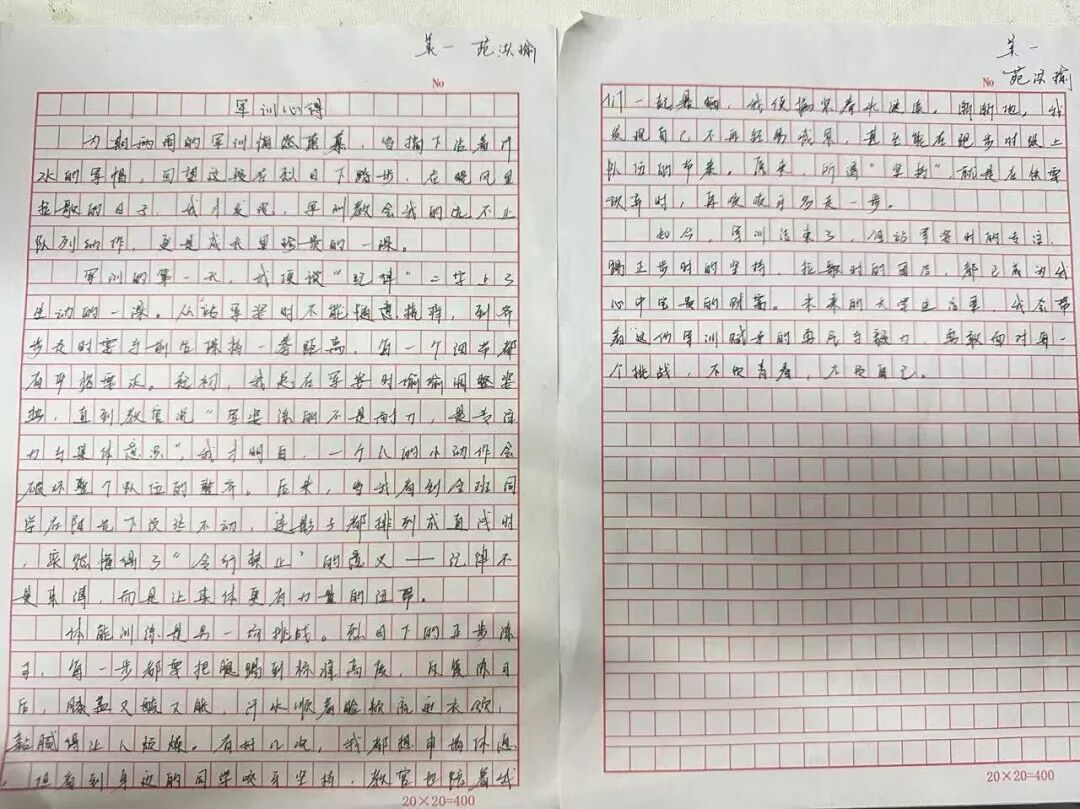 美一 苑洪瑜
No
军训心得
为期两周的军训悄然落幕,当摘下沾着汗
水的军帽,回望这段在烈日下踏步,在晚风里
拉歌的日子,我才发现,军训教会我的远不止
队列动作,更是成长里珍贵的一课。
军训的第一天,我便被“纪律”二字上了
生动的一课。从站军姿时不能随意挠痒,到齐
步走时要与前后保持一臂距离,每一个细节都
有严格要求。起初,我总在军姿时偷偷调整姿
势,直到教官说“军姿练的不是耐力,是专注
力与集体意识”,我才明白,一个人的小动作会
破坏整个队伍的整齐。后来,当我看到全班同
学在阳光下纹丝不动,连影子都排列成直线时
,突然懂得了“令行禁止”的意义——纪律不
是束缚,而是让集体更有力量的纽带。
体能训练是另一场挑战。烈日下的正步练
习,每一步都要把腿踢到标准高度,反复练习
后,膝盖又酸又胀,汗水顺着脸颊流进衣领,
黏腻得让人烦躁。有好几次,我都想申请休息
,但看到身边的同学咬牙坚持,教官也陪着我
20×20=400
美一
苑洪瑜
No
们一起暴晒,我便攥紧拳头继续。渐渐地,我
发现自己不再轻易喊累,甚至能在跑步时跟上
队伍的节奏。原来,所谓“坚持”,就是在想要
放弃时,再咬咬牙多走一步。
如今,军训结束了,但站军姿时的专注,
踢正步时的坚持,拉歌时的团结,都已成为我
心中宝贵的财富。未来的大学生活里,我会带
着这份军训赋予的勇气与毅力,勇敢面对每一
个挑战,不负青春,不负自己。
20×20=400